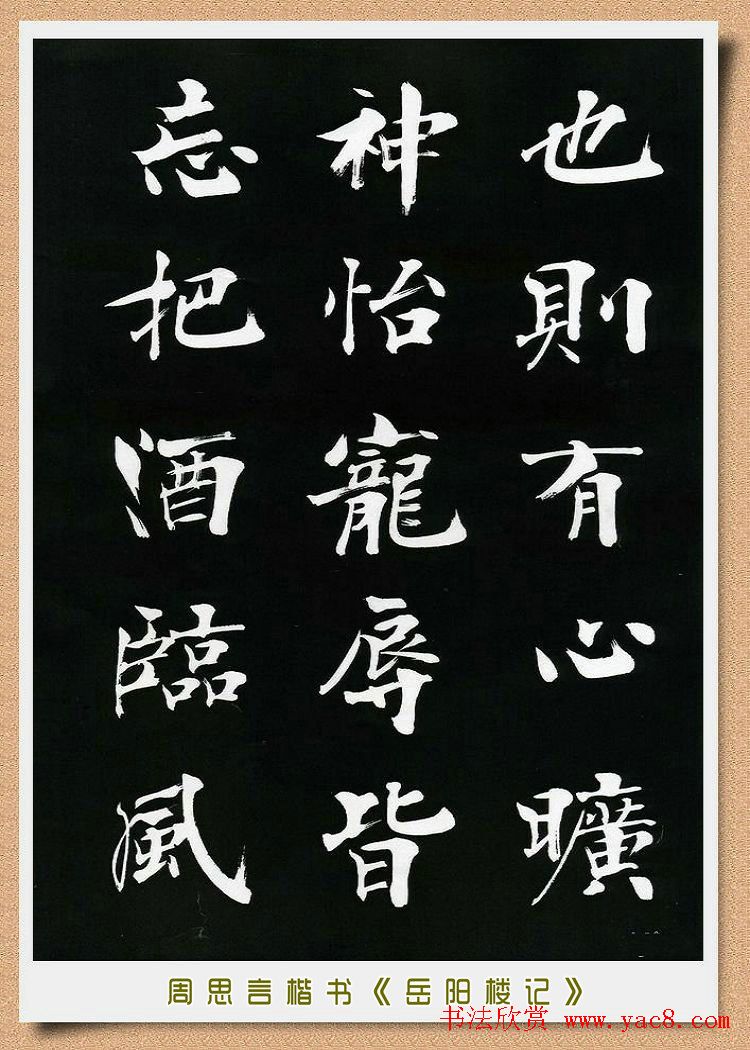 也則有心曠
神怡寵辱皆
忘把酒臨風
周思言楷书《岳阳楼记》
书法欣赏 www.yac8.com